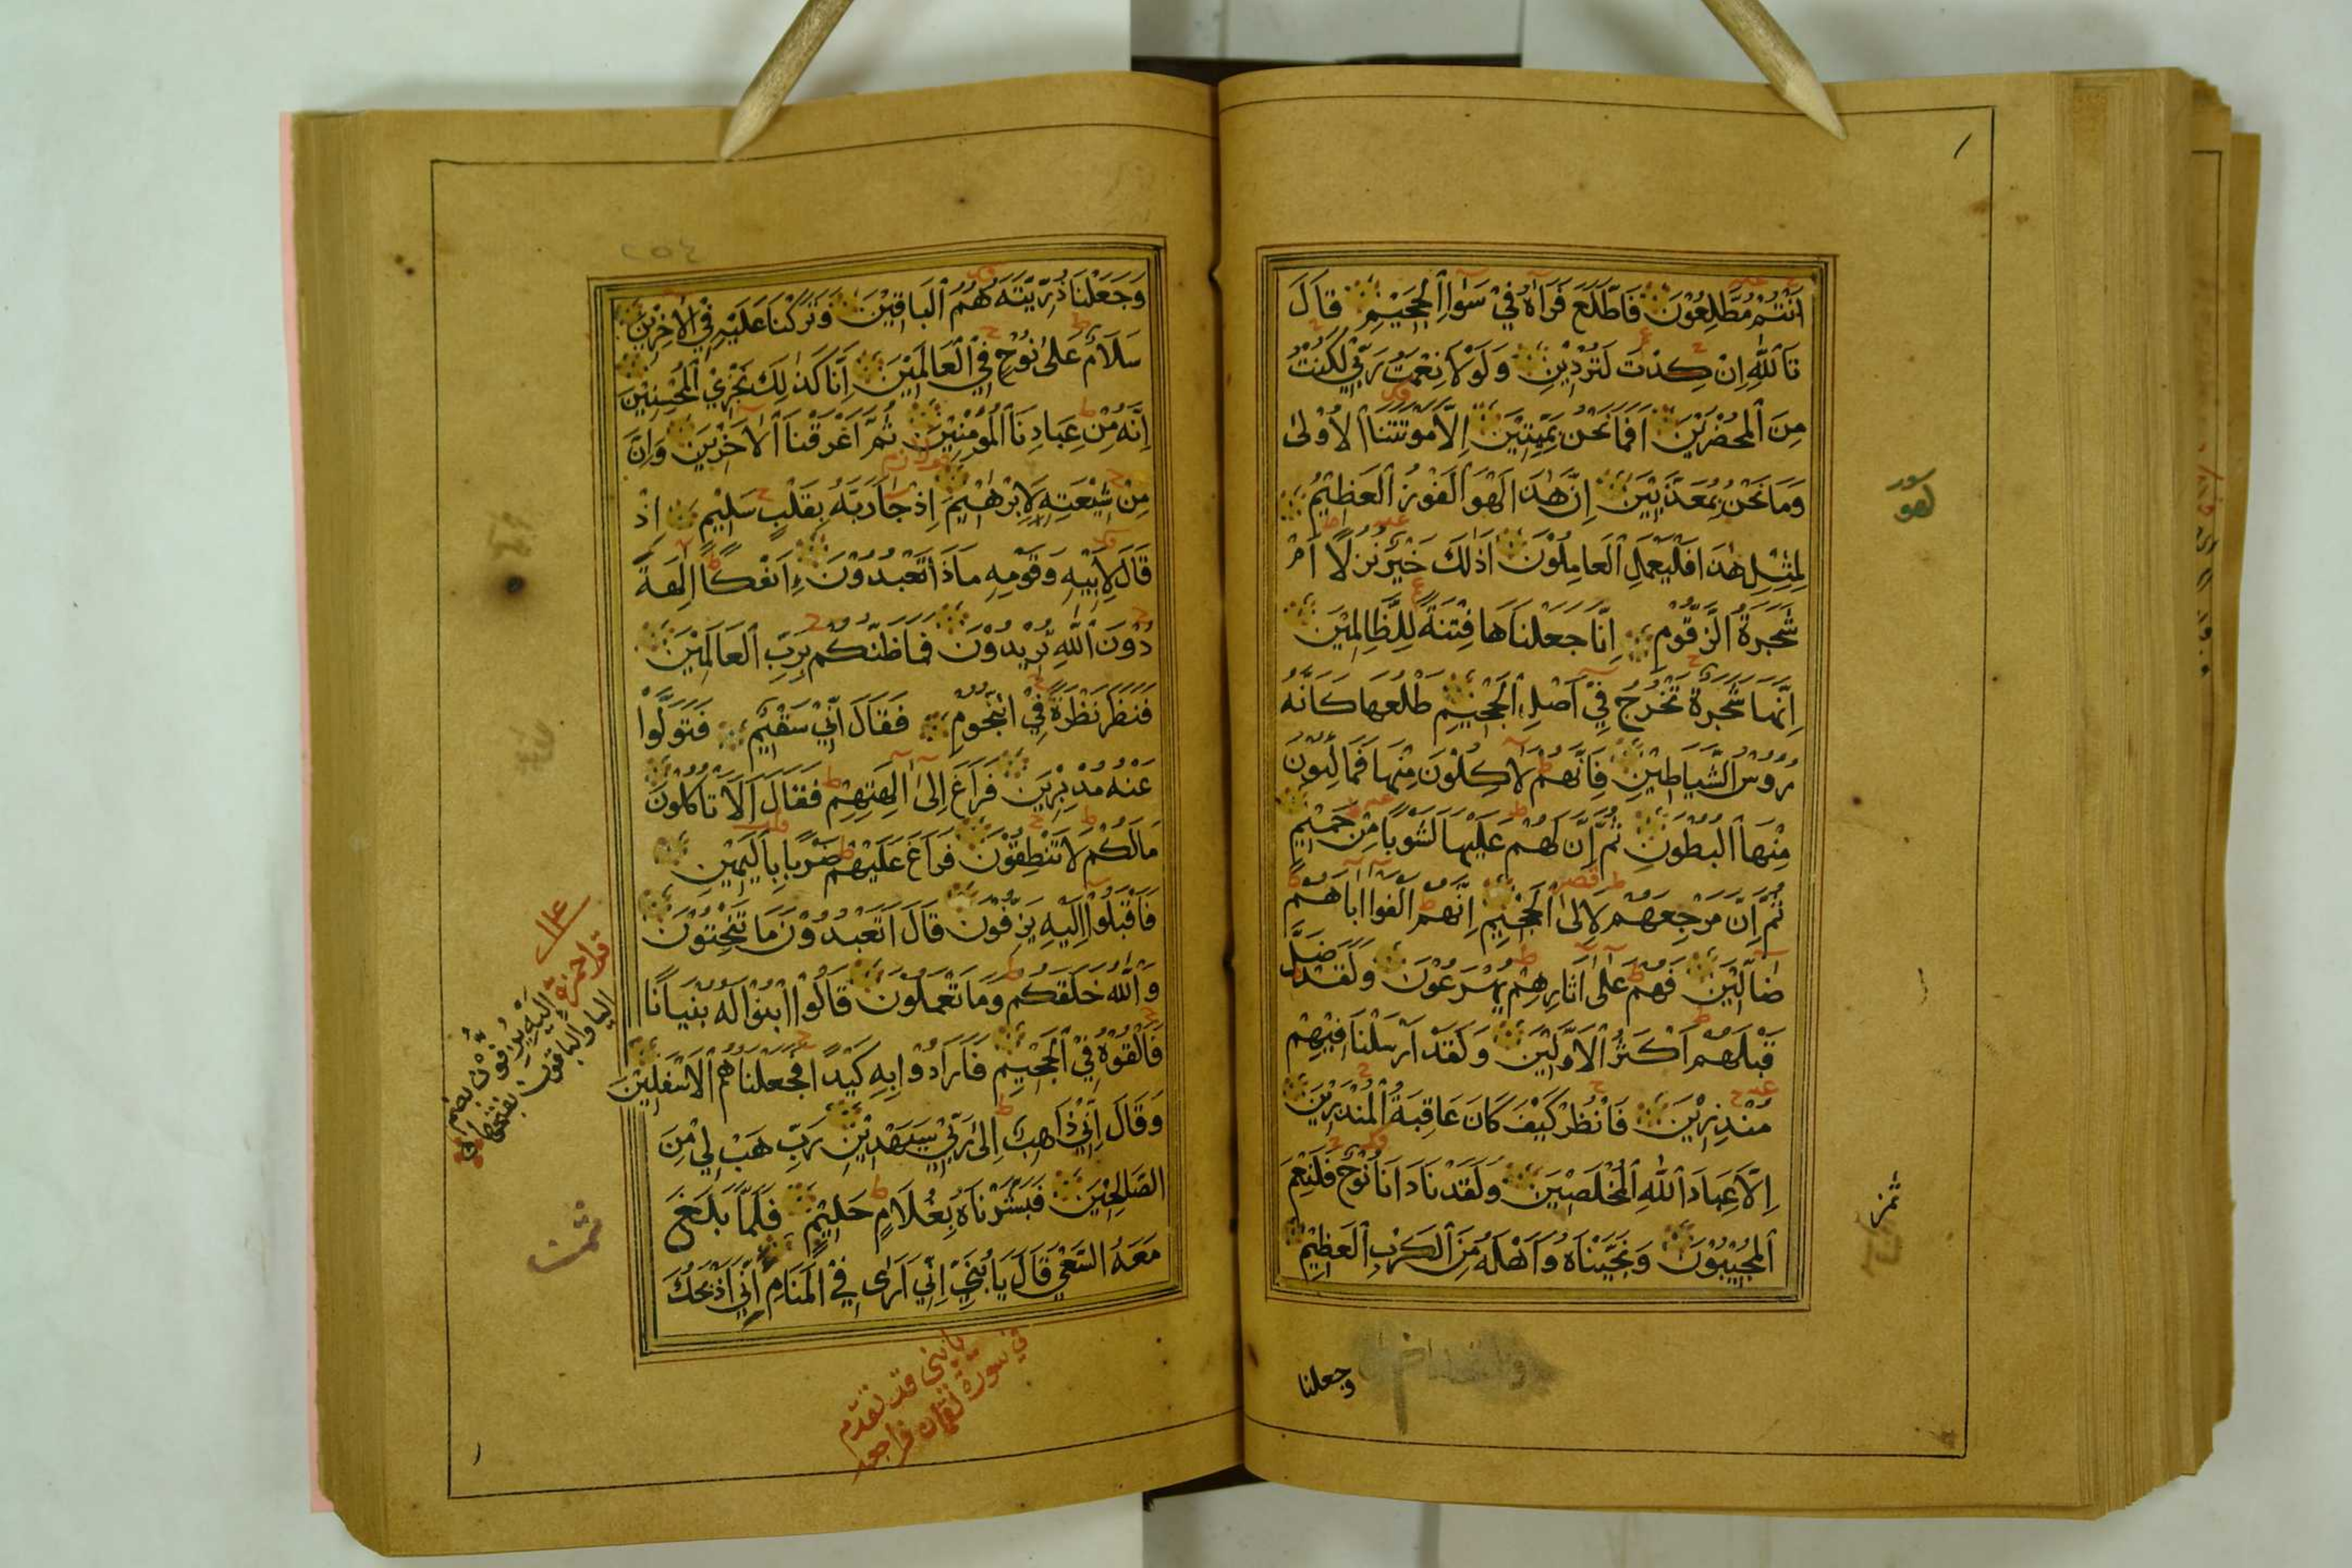 اَنْتُمْ مُطَّلِعُوْنَ فَاطَّلَعَ فَرَاٰهُ فِيْ سَوَاۤءِ الْجَحِيْمِ قَالَ
تَاللّٰهِ اِنْ كِدْتَ لَتُرْدِيْنِ وَلَوْلَا نِعْمَتُ رَبِّيْ لَكُنْتُ
مِنَ الْمُحْضَرِيْنَ اَفَمَا نَحْنُ بِمَيِّتِيْنَ اِلَّا مَوْتَتَنَا الْاُوْلٰى
وَمَا نَحْنُ بِمُعَذَّبِيْنَ اِنَّ هٰذَا لَهُوَ الْفَوْزُ الْعَظِيْمُ
لِمِثْلِ هٰذَا فَلْيَعْمَلِ الْعَامِلُوْنَ اَذٰلِكَ خَيْرٌ نُزُلًا اَمْ
شَجَرَةُ الزَّقُّوْمِ اِنَّا جَعَلْنَاهَا فِتْنَةً لِلظَّالِمِيْنَ
اِنَّهَا شَجَرَةٌ تَخْرُجُ فِيْ اَصْلِ الْجَحِيْمِ طَلْعُهَا كَاَنَّهُ
رُءُوْسُ الشَّيَاطِيْنِ فَاِنَّهُمْ لَاٰكِلُوْنَ مِنْهَا فَمَالِئُوْنَ
مِنْهَا الْبُطُوْنَ ثُمَّ اِنَّ لَهُمْ عَلَيْهَا لَشَوْبًا مِنْ حَمِيْمٍ
ثُمَّ اِنَّ مَرْجِعَهُمْ لَاِلَى الْجَحِيْمِ اِنَّهُمْ اَلْفَوْا اٰبَاۤءَهُمْ
ضَاۤلِّيْنَ فَهُمْ عَلٰى اٰثَارِهِمْ يُهْرَعُوْنَ وَلَقَدْ ضَلَّ
قَبْلَهُمْ اَكْثَرُ الْاَوَّلِيْنَ وَلَقَدْ اَرْسَلْنَا فِيْهِمْ
مُنْذِرِيْنَ فَانْظُرْ كَيْفَ كَانَ عَاقِبَةُ الْمُنْذَرِيْنَ
اِلَّا عِبَادَ اللّٰهِ الْمُخْلَصِيْنَ وَلَقَدْ نَادَانَا نُوْحٌ فَلَنِعْمَ
الْمُجِيْبُوْنَ وَنَجَّيْنَاهُ وَاَهْلَهُ مِنَ الْكَرْبِ الْعَظِيْمِ
ثمن
وجعلنا
٢٥٤
وَجَعَلْنَا ذُرِّيَّتَهُ هُمُ الْبَاقِيْنَ وَتَرَكْنَا عَلَيْهِ فِي الْاٰخِرِيْنَ
سَلَامٌ عَلٰى نُوْحٍ فِي الْعَالَمِيْنَ اِنَّا كَذٰلِكَ نَجْزِي الْمُحْسِنِيْنَ
اِنَّهُ مِنْ عِبَادِنَا الْمُؤْمِنِيْنَ ثُمَّ اَغْرَقْنَا الْاٰخَرِيْنَ وَاِنَّ
مِنْ شِيْعَتِهِ لَاِبْرٰهِيْمَ اِذْ جَاۤءَ رَبَّهُ بِقَلْبٍ سَلِيْمٍ اِذْ
قَالَ لِاَبِيْهِ وَقَوْمِهِ مَاذَا تَعْبُدُوْنَ ءَاِفْكًا اٰلِهَةً
دُوْنَ اللّٰهِ تُرِيْدُوْنَ فَمَا ظَنُّكُمْ بِرَبِّ الْعَالَمِيْنَ
فَنَظَرَ نَظْرَةً فِي النُّجُوْمِ فَقَالَ اِنِّيْ سَقِيْمٌ فَتَوَلَّوْا
عَنْهُ مُدْبِرِيْنَ فَرَاغَ اِلٰى اٰلِهَتِهِمْ فَقَالَ اَلَا تَاْكُلُوْنَ
مَالَكُمْ لَا تَنْطِقُوْنَ فَرَاغَ عَلَيْهِمْ ضَرْبًا بِالْيَمِيْنِ
فَاَقْبَلُوْا اِلَيْهِ يَزِفُّوْنَ قَالَ اَتَعْبُدُوْنَ مَا تَنْحِتُوْنَ
وَاللّٰهُ خَلَقَكُمْ وَمَا تَعْمَلُوْنَ قَالُوا ابْنُوْا لَهُ بُنْيَانًا
فَاَلْقُوْهُ فِي الْجَحِيْمِ فَاَرَادُوْا بِهِ كَيْدًا فَجَعَلْنَاهُمُ الْاَسْفَلِيْنَ
وَقَالَ اِنِّيْ ذَاهِبٌ اِلٰى رَبِّيْ سَيَهْدِيْنِ رَبِّ هَبْ لِيْ مِنَ
الصّٰلِحِيْنَ فَبَشَّرْنَاهُ بِغُلَامٍ حَلِيْمٍ فَلَمَّا بَلَغَ
مَعَهُ السَّعْيَ قَالَ يَا بُنَيَّ اِنِّيْ اَرٰى فِي الْمَنَامِ اَنِّيْ اَذْبَحُكَ
قرا حمزة اليه يُزفّون بضم
اليا والباقون بفتحها
ثمن
يا بني قد تقدم
في سورة لقمان فراجعه